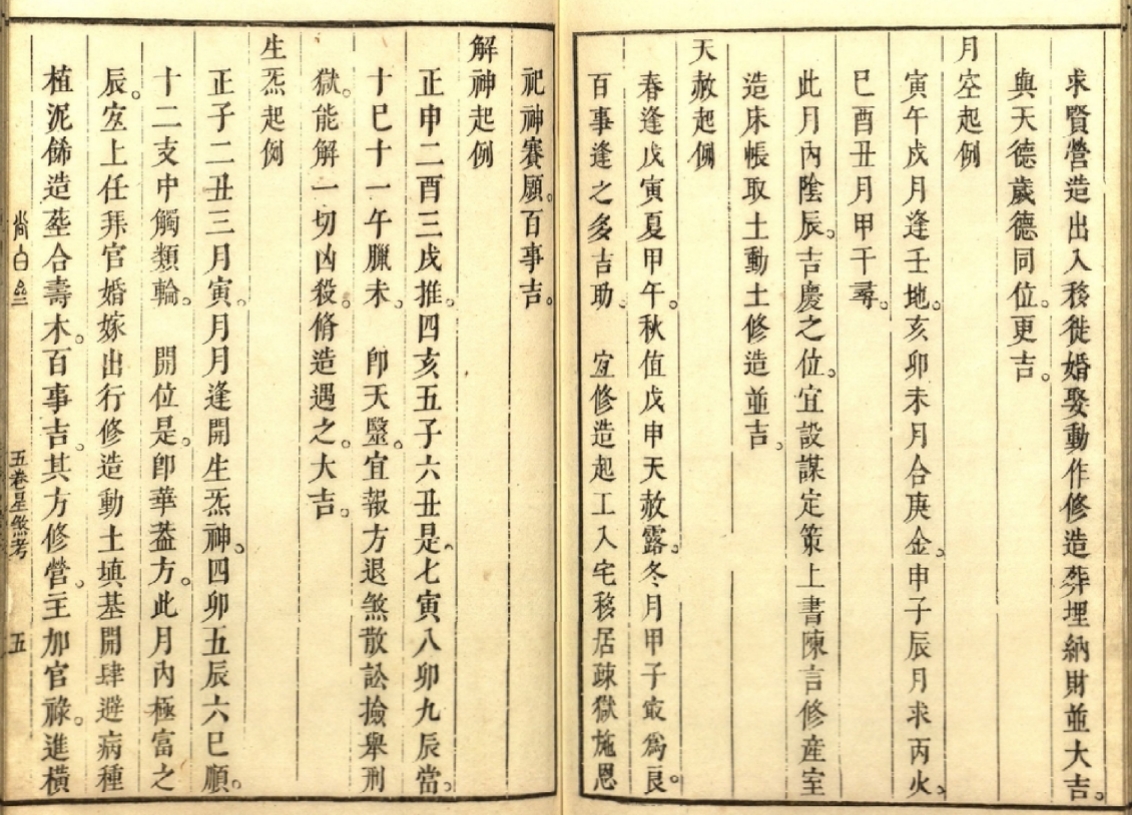 求賢營造出入移徙婚娶動作修造葬埋納財並大吉。
與天德歲德同位。更吉。
月空起例
寅午戌月逢壬地。亥卯未月合庚金。申子辰月求丙火。
巳酉丑月甲干尋。
此月內陰辰。吉慶之位。宜設謀定策上書陳言修產室
造床帳取土動土修造並吉。
天赦起例
春逢戊寅夏甲午。秋值戊申天赦露。冬月甲子最為良。
百事逢之多吉助。 宜修造起工入宅移居疎獄施恩
祀神賽願。百事吉。
解神起例
正申二酉三戌推。四亥五子六丑是。七寅八卯九辰當。
十巳十一午臘未。 卽天毉。宜報方退煞散訟撿舉刑
獄。能解一切凶殺。脩造遇之。大吉。
生炁起例
正子二丑三月寅。月月逢開生炁神。四卯五辰六巳順。
十二支中觸類輪。 開位是。卽華葢方。此月內極富之
辰。宜上任拜官婚嫁出行修造動土塡基開肆避病種
植泥飾造塟合壽木。百事吉。其方修營。主加官祿。進橫
五卷星煞考 五